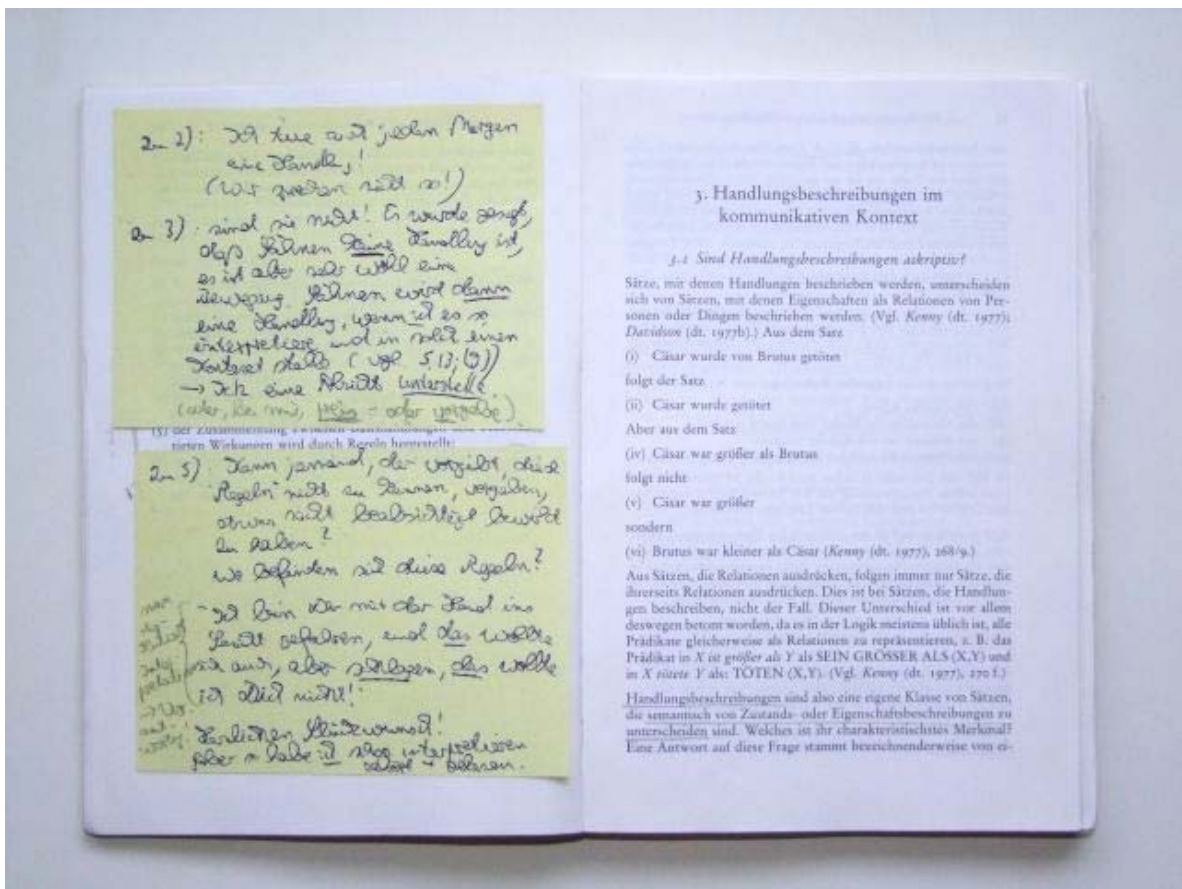 Zu 2): Ich tue das jeden Morgen
eine Handlg!
(Wir sprechen nicht so!)
Zu 3): sind sie nicht! Es wurde gesagt,
daß Gähnen keine Handlung ist,
es ist aber sehr wohl eine
Bewegung. Gähnen wird dann
eine Handlung, wenn ich es so
interpretiere und in solch einen
Kontext stelle (vgl. S. 13; (9))
→ Ich eine Absicht unterstelle.
(oder, bei mir, = oder vorgebe)
(5) der Zusammenhang zwischen
tierten Wirkungen wird durch Regeln hergestellt:
Zu 5): Kann jemand, der vorgibt, diese
Regeln nicht zu kennen, vorgeben,
etwas nicht beabsichtigt bewirkt
zu haben?
Wo befinden sich diese Regeln?
"Ich bin dir mit der Hand ins
Gesicht gefahren, und das wollte
ich auch, aber schlagen, das wollte
ich dich nicht!"
Herzlichen Glückwunsch!
Aber so habe ich schon interpretieren
3. Handlungsbeschreibungen im
kommunikativen Kontext
3.1 Sind Handlungsbeschreibungen askriptiv?
Sätze, mit denen Handlungen beschrieben werden, unterscheiden
sich von Sätzen, mit denen Eigenschaften als Relationen von Per-
sonen oder Dingen beschrieben werden. (Vgl. Kenny (dt. 1977);
Davidson (dt. 1977b).) Aus dem Satz
(i) Cäsar wurde von Brutus getötet
folgt der Satz
(ii) Cäsar wurde getötet
Aber aus dem Satz
(iv) Cäsar war größer als Brutus
folgt nicht
(v) Cäsar war größer
sondern
(vi) Brutus war kleiner als Cäsar (Kenny (dt. 1977), 268/9.)
Aus Sätzen, die Relationen ausdrücken, folgen immer nur Sätze, die
ihrerseits Relationen ausdrücken. Dies ist bei Sätzen, die Handlun-
gen beschreiben, nicht der Fall. Dieser Unterschied ist vor allem
deswegen betont worden, da es in der Logik meistens üblich ist, alle
Prädikate gleicherweise als Relationen zu repräsentieren, z. B. das
Prädikat in X ist größer als Y als SEIN GRÖSSER ALS (X,Y) und
in X tötete Y als: TÖTEN (X,Y). (Vgl. Kenny (dt. 1977), 270 f.)
Handlungsbeschreibungen sind also eine eigene Klasse von Sätzen,
die semantisch von Zustands- oder Eigenschaftsbeschreibungen zu
unterscheiden sind. Welches ist ihr charakteristischstes Merkmal?
Eine Antwort auf diese Frage stammt bezeichnenderweise von ei-